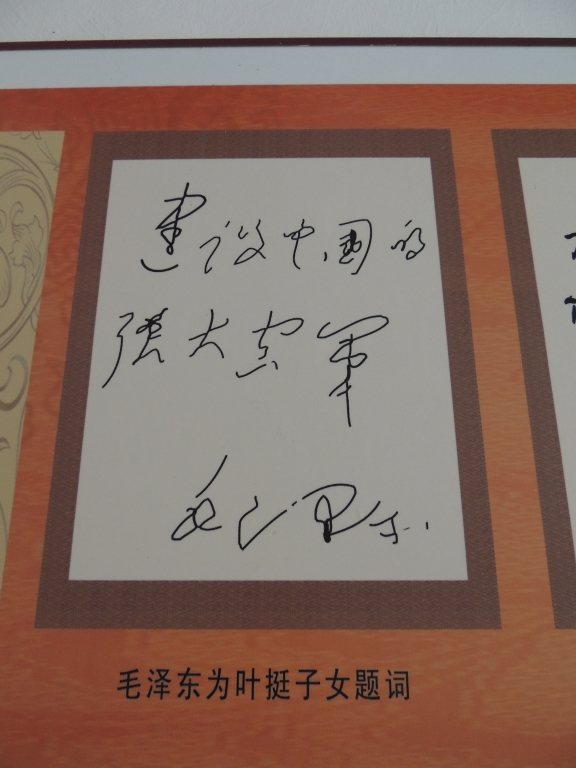 建设中国的
强大空军
毛泽东
毛泽东为叶挺子女题词